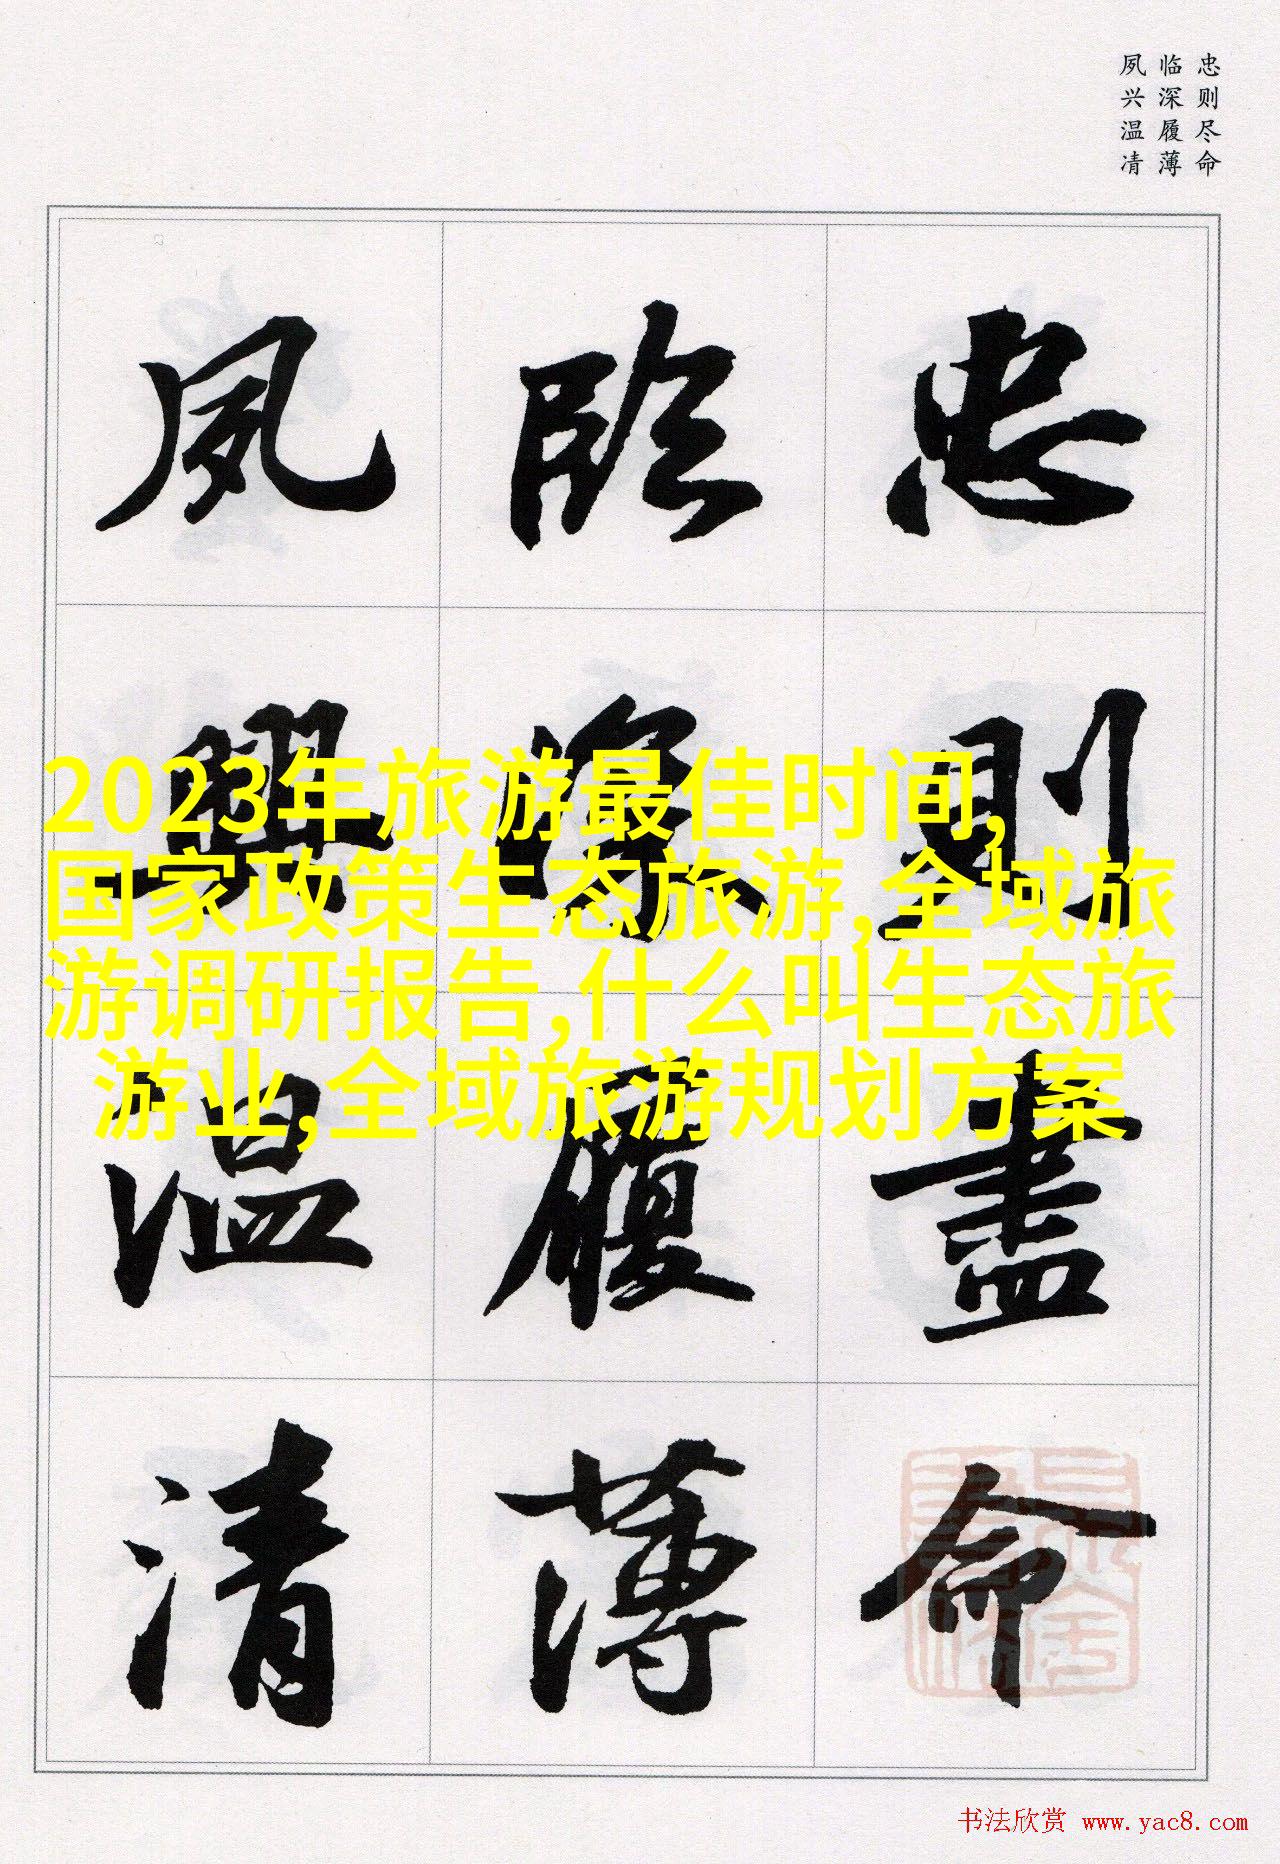 忠则尽命
临深履薄
夙兴温凊
忠則盡命
臨深履薄
夙興温清
2023年旅游最佳时间,
国家政策生态旅游,全域旅
游调研报告,什么叫生态旅
游业,全域旅游规划方案
书法欣赏 www.yac8.com